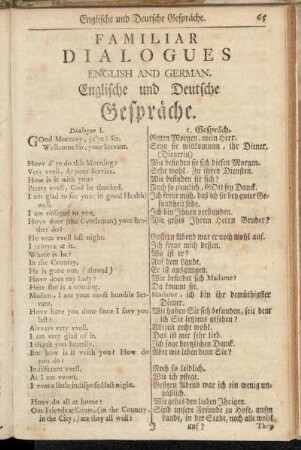 Englische und Deutsche Gespräche. 65
FAMILIAR
DIALOGUES
ENGLISH AND GERMAN.
Englische und Deutsche
Gespräche.
Dialogue I.
GOod Morrovv, Sir.
Wellcome Sir, your Servant.
Hovv d'ye do this Morning?
Very vvell, At your Service.
Hovv is it vvith you?
Pretty vvell, God be thanked.
I am glad to see you; in good Health;
vvell.
I am obliged to you,
Hovv does (the Gentleman) your Brother
do?
He vvas vvell last night.
I rejoyce at it.
Where is he?
In the Country.
He is gone out (abroad)
Hovv does my Lady?
Here she is a coming.
Madam, I am your most humble Servant.
Hovv have you done since I savv you
last?
Alvvays very vvell.
I am very glad of it.
I think you heartily.
But hovv is it vvith you? Hovv do
you do?
Indifferent vvell.
As I am vvont.
I vvas a little indisposed last night.
Hovv do all at home?
Our Friends at Court, (in the Country,
in the City,) are they all well?
1. Gespräch.
Guten Morgen, mein Herr.
Seyn sie willkommen, ihr Diener,
(Dienerin)
Wie befinden sie sich diesen Morgen.
Sehr wohl. Zu ihren Diensten.
Wie befinden sie sich?
Noch so ziemlich, GOtt sey Danck.
Ich freue mich, das ich sie bey guter Gesundheit
sehe.
Ich bin Ihnen verbunden.
Wie gehts Ihrem Herrn Bruder?
Gestern Abend war er noch wohl auf.
Ich freue mich dessen.
Wo ist er?
Auf dem Lande.
Er ist ausgangen.
Wie befindet sich Madame?
Da kommt sie.
Madame, ich bin ihr demüthigster
Diener.
Wie haben Sie sich befunden, seit dem
ich Sie letztens gesehen?
Allzeit recht wohl.
Das ist mir sehr lieb.
Ich sage hertzlichen Danck.
Aber wie leben denn Sie?
Noch so leidlich.
Wie ich pflege.
Gestern Abend war ich ein wenig unpäßlich.
Wie gehts den lieben Ihrigen.
Sind unsere Freunde zu Hofe, aufm
Lande, in der Stadt, noch alle wohl
auf? They